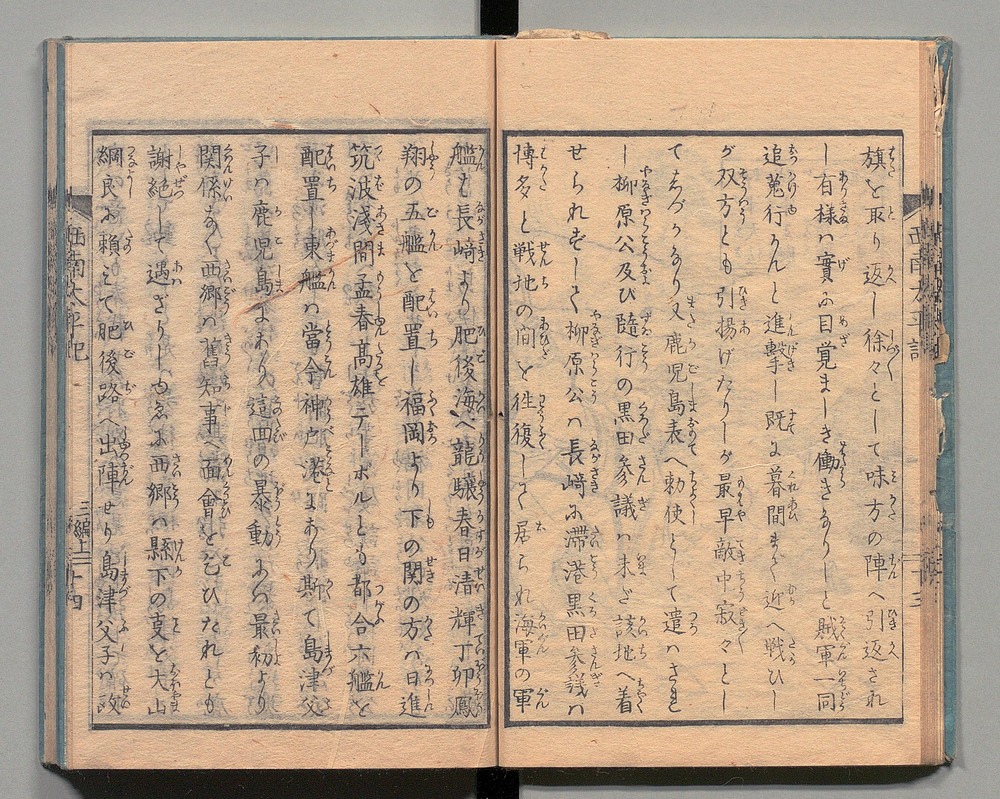 旗を取り返し徐々として味方の陣へ引返され
し有様ハ實に目覚ましき働きなりしと賊軍一同
追蒐行かんと進撃し既に暮間まぢ近へ戦ひし
が双方とも引揚げたりしが最早敵中寂々とし
てしづかなり又鹿児島表へ勅使として遣ハされ
し柳原公及び随行の黒田参議ハ未だ該地へ着
せられずして柳原公ハ長﨑に滞港黒田参議ハ
博多と戦地の間を往復して居られ海軍の軍
艦も長﨑より肥後海へ龍驤春日清輝丁卯鳳
翔の五艦を配置し福岡より下の関の方ハ日進
筑波浅間孟春髙雄テーボルとも都合六艦を
配置し東艦ハ當今神戸港にあり斯て島津父
子ハ鹿児島にあり這回の暴動にハ最初より
関係なく西郷ハ舊知事へ面會を乞ひたれとも
謝絶して遇ざりしゆゑに西郷ハ縣下の事を大山
綱良に頼ミて肥後路へ出陣せり島津父子ハ政
西南太平記
三編上
十四